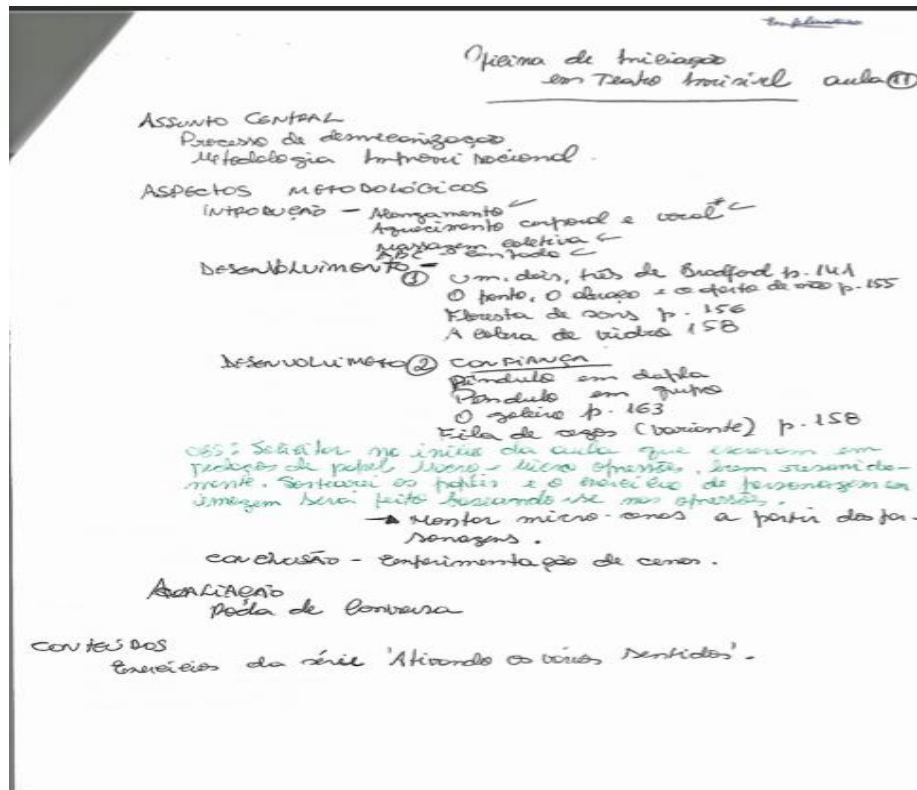 Oficina de Iniciação
em Teatro Invisível aula 11
ASSUNTO CENTRAL
Processo de desmecanização
Metodologia Improvisacional.
ASPECTOS METODOLÓGICOS
INTRODUÇÃO - Alongamento
Aquecimento corporal e vocal
Massagem coletiva
ABC
DESENVOLVIMENTO -
① Um, dois, três de Bradford p. 141
O ponto, o abraço e o aperto de mão p. 155
Floresta de sons p. 156
A cobra de vidro 158
DESENVOLVIMETO ② CONFIANÇA
Pêndulo em dupla
Pêndulo em grupo
O goleiro p. 163
Fila de cegos (variante) p. 158
OBS: Solicitar no início da aula que escrevam em
pedaços de papel micro opressões, bem resumida-
mente. Sortearei os papéis e o exercício de personagem em
imagem será feito baseando-se nas opressões.
→ Montar micro-cenas a partir dos per-
sonagens.
CONCLUSÃO - Experimentação de cenas.
AVALIAÇÃO
Roda de Conversa
CONTEÚDOS
Exercícios da série 'Ativando os vários sentidos'.